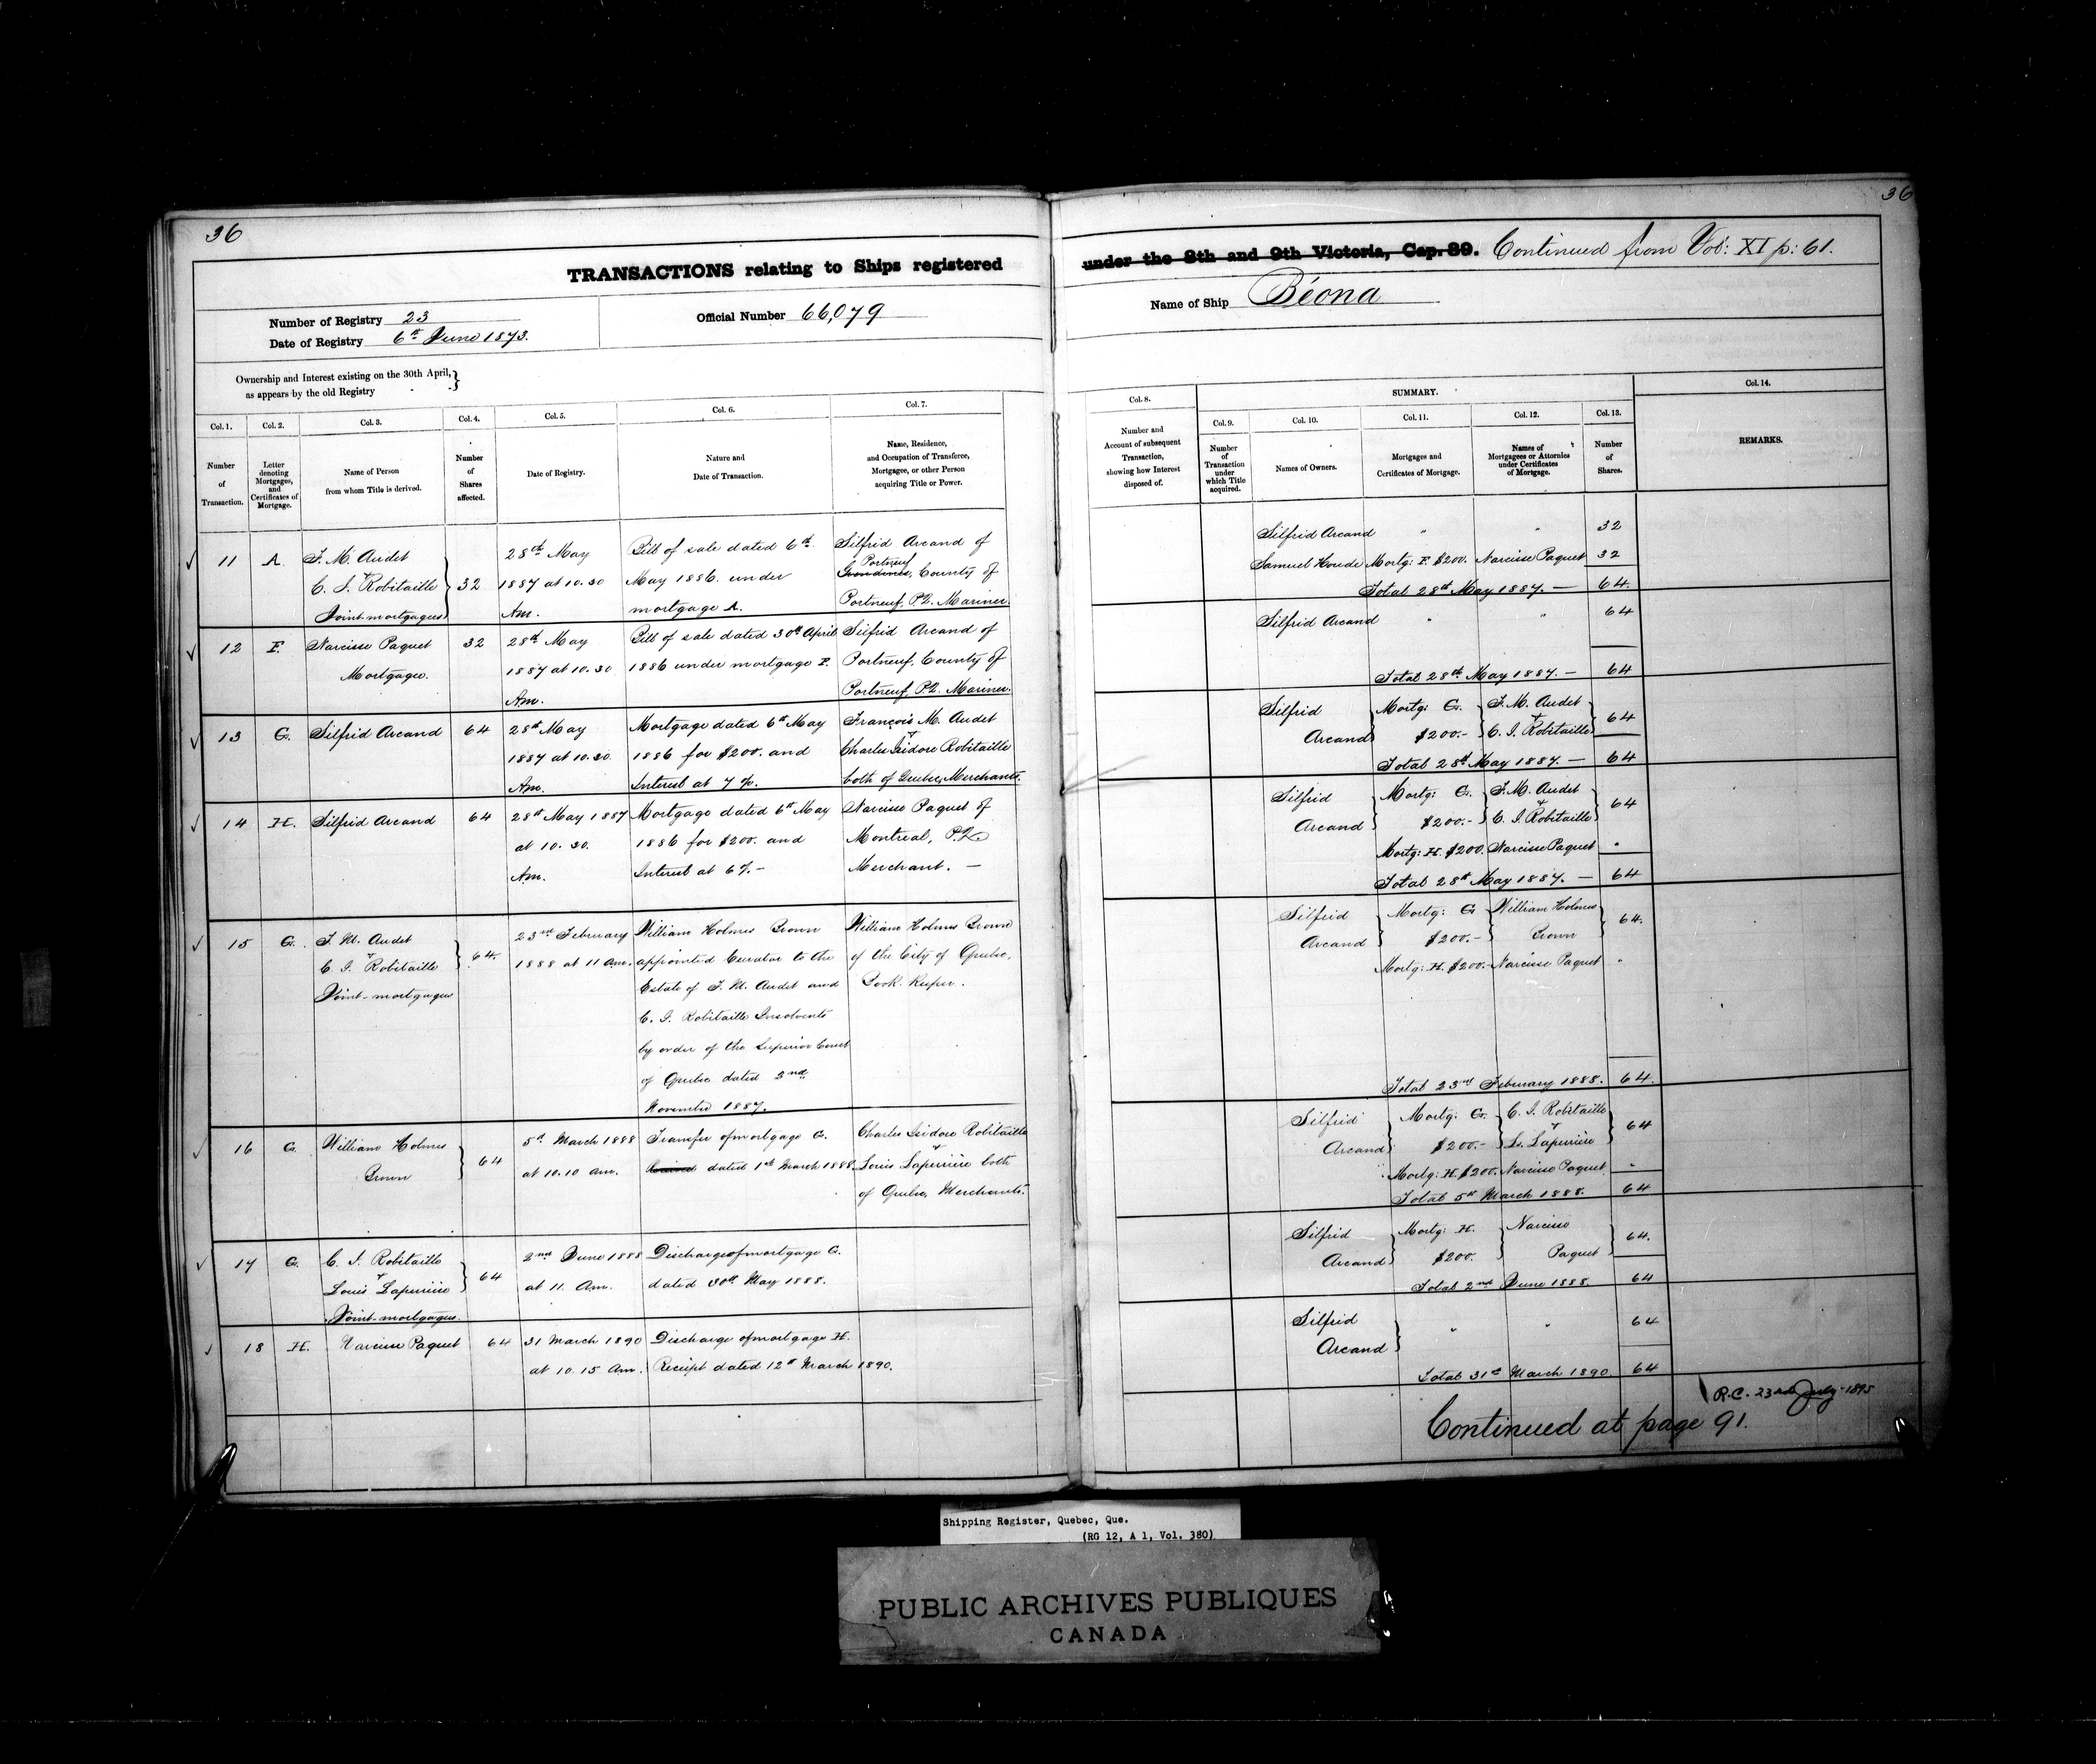 36
TRANSACTIONS relating to Ships registered
Number of Registry 23
Date of Registry 6th June 1873.
Official Number 66,079
Ownership and Interest existing on the 30th April,
as appears by the old Registry
Col. 1.
Col. 2.
Col. 3.
Col. 4.
Col. 5.
Col. 6.
Col. 7.
Number
of
Transaction.
Letter
denoting
Mortgages,
and
Certificates of
Mortgage.
Name of Person
from whom Title is derived.
Number
of
Shares
affected.
Date of Registry.
Nature and
Date of Transaction.
Name, Residence,
and Occupation of Transferee,
Mortgagee, or other Person
acquiring Title or Power.
11 A. F. M. Audet
&
C. I. Robitaille
Joint mortgagees
32
28th May
1887 at 10.30
Am.
Bill of sale dated 6th
May 1886. under
mortgage A.
Silfrid Arcand of
Portneuf
Grondines, County of
Portneuf, P.Q. Mariner.
12 F. Narcisse Paquet
Mortgagee.
32
28th May
1887 at 10.30
Am.
Bill of sale dated 30th April
1886 under mortgage F.
Silfrid Arcand of
Portneuf, County of
Portneuf, P.Q. Mariner.
13 G. Silfrid Arcand
64
28th May
1887 at 10.30
Am.
Mortgage dated 6th May
1886 for $200. and
Interest at 7 %.
François M. Audet
&
Charles Isidore Robitaille
both of Quebec, Merchants.
14 H. Silfrid Arcand
64
28th May 1887
at 10.30.
Am.
Mortgage dated 6th May
1886 for $200. and
Interest at 6%.-
Narcisse Paquet of
Montreal, P.Q.
Merchant. —
15 G. F. M. Audet
&
C. I. Robitaille
Joint-mortgagees
64.
23rd February
1888 at 11 Am.
William Holmes Brown
appointed Curator to the
Estate of F. M. Audet and
C. I. Robitaille Insolvents
by order of the Superior Court
of Quebec dated 2nd
November 1887.
William Holmes Brown
of the City of Quebec,
Book-Keeper.
16 G. William Holmes
Brown
64
5th March 1888
at 10.10 am.
Transfer of mortgage G.
dated 1st March 1888.
Charles Isidore Robitaille
&
Louis Laperrière both
of Quebec, Merchants.
17 G. C. I. Robitaille
&
Louis Laperrière
Joint-mortgagees.
64
2nd June 1888
at 11. Am.
Discharge of mortgage G.
dated 30th May 1888.
18 H. Narcisse Paquet
64
31 March 1890
at 10.15 Am.
Discharge of mortgage H.
Receipt dated 12th March 1890.
36
under the 8th and 9th Victoria, Cap. 89. Continued from Vol: XI p: 61.
Name of Ship Béona
Col. 8.
SUMMARY.
Col. 14.
Col. 9.
Col. 10.
Col. 11.
Col. 12.
Col. 13.
Number and
Account of subsequent
Transaction,
showing how Interest
disposed of.
Number
of
Transaction
under
which Title
acquired.
Names of Owners.
Mortgages and
Certificates of Mortgage.
Names of
Mortgagees or Attornies
under Certificates
of Mortgage.
Number
of
Shares.
REMARKS.
Silfrid Arcand " " 32
Samuel Houde Mortg: F. $200. Narcisse Paquet 32
Total 28th May 1887. — 64.
Silfrid Arcand " " 64
Total 28th May 1887. — 64
Silfrid Mortg: G. F. M. Audet
&
Arcand $200.- C. I. Robitaille 64
Total 28th May 1887. — 64
Silfrid Mortg: G. F. M. Audet
&
Arcand $200.- C. I. Robitaille 64
Mortg: H. $200. Narcisse Paquet "
Total 28th May 1887. — 64
Silfrid Mortg: G William Holmes
Arcand $200.- Brown 64.
Mortg: H. $200.- Narcisse Paquet "
Total 23rd February 1888. 64.
Silfrid Mortg: G. C. I. Robitaille
&
Arcand $200.- Ls. Laperrière 64
Mortg: H. $200. Narcisse Paquet "
Total 5th March 1888. 64
Silfrid Mortg: H. Narcisse
Arcand $200. Paquet 64.
Total 2nd June 1888. 64
Silfrid
Arcand " " 64
Total 31st March 1890. 64
R.C. 23rd July-1895
Continued at page 91.
Shipping Register, Quebec, Que.
(RG 12, A 1, Vol. 380)
PUBLIC ARCHIVES PUBLIQUES
CANADA